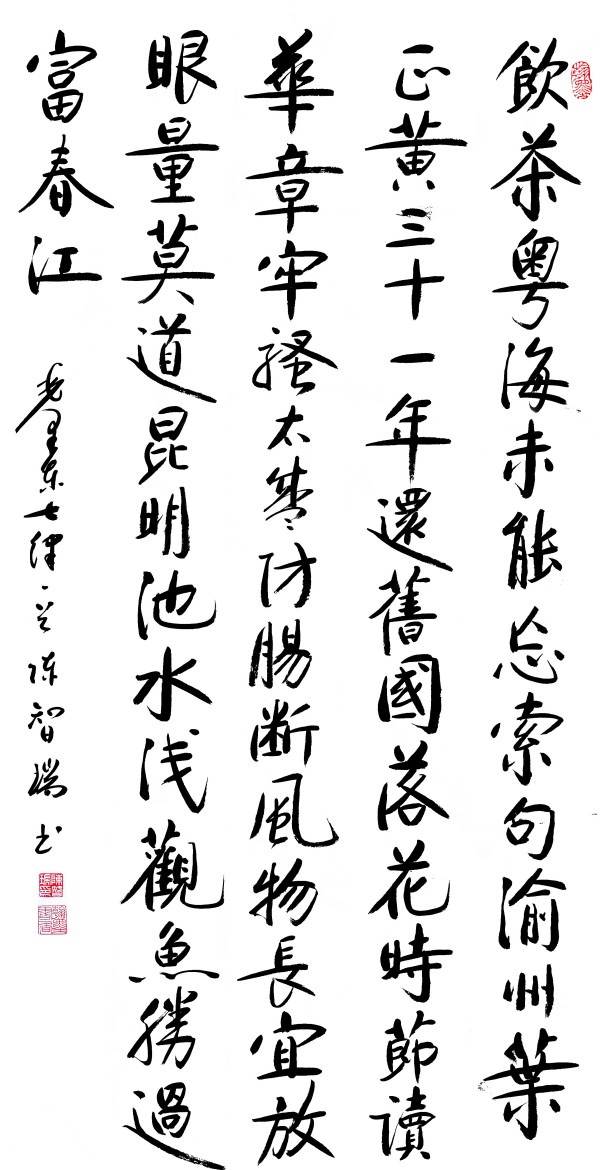 飲茶粵海未能忘索句渝州葉
正黄三十一年還舊國落花時節讀
華章牢騷太盛防腸断風物長宜放
眼量莫道昆明池水浅觀魚勝過
富春江
毛澤东七律一首陈智瑞书